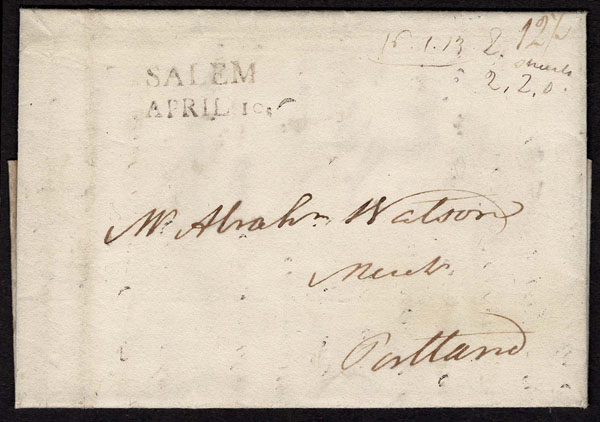 SALEM
APRIL 10
2. 12½
2. 2. 0.
Mr. Abrahm Watson
Mercht.
Portland